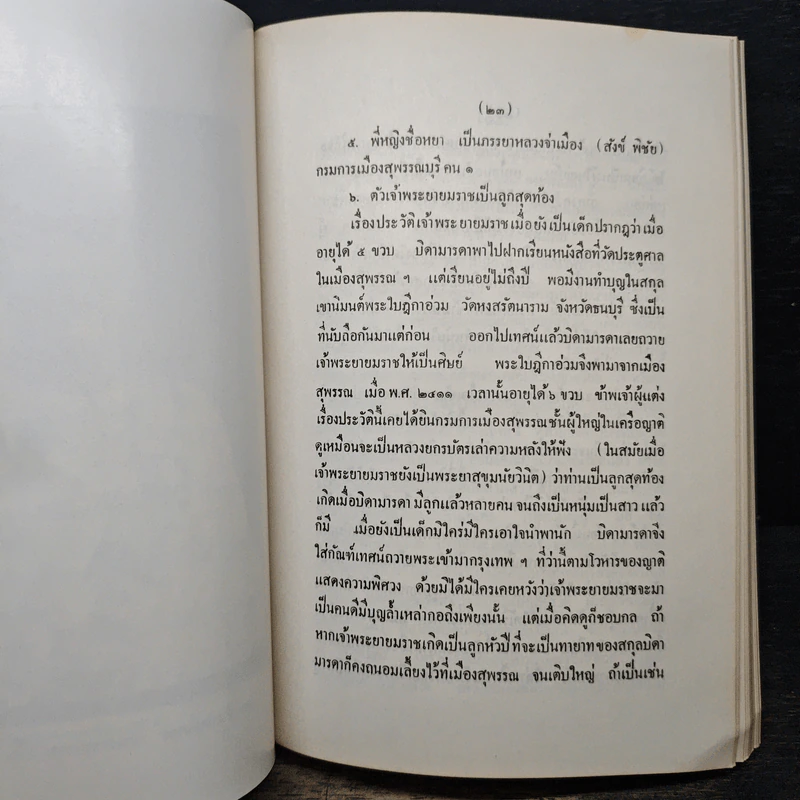 (๒๓)
๕. พี่หญิงชื่อหยา เป็นภรรยาหลวงจ่าเมือง (สังข์ พิชัย)
กรมการเมืองสุพรรณบุรี คน ๑
๖. ตัวเจ้าพระยายมราชเป็นลูกสุดท้อง
เรื่องประวัติเจ้าพระยายมราชเมื่อยังเป็นเด็กปรากฏว่าเมื่อ
อายุได้ ๕ ขวบ บิดามารดาพาไปฝากเรียนหนังสือที่วัดประตูศาล
ในเมืองสุพรรณ ฯ แต่เรียนอยู่ไม่ถึงปี พอมีงานทำบุญในสกุล
เขานิมนต์พระใบฎีกาอ่วม วัดหงสรัตนาราม จังหวัดธนบุรี ซึ่งเป็น
ที่นับถือกันมาแต่ก่อน ออกไปเทศน์แล้วบิดามารดาเลยถวาย
เจ้าพระยายมราชให้เป็นศิษย์ พระใบฎีกาอ่วมจึงพามาจากเมือง
สุพรรณ เมื่อ พ.ศ. ๒๔๑๑ เวลานั้นอายุได้ ๖ ขวบ ข้าพเจ้าผู้แต่ง
เรื่องประวัตินี้เคยได้ยินกรมการเมืองสุพรรณชั้นผู้ใหญ่ในเครือญาติ
ดูเหมือนจะเป็นหลวงยกรบัตรเล่าความหลังให้ฟัง (ในสมัยเมื่อ
เจ้าพระยายมราชยังเป็นพระยาสุขุมนัยวินิต) ว่าท่านเป็นลูกสุดท้อง
เกิดเมื่อบิดามารดา มีลูกแล้วหลายคน จนถึงเป็นหนุ่มเป็นสาวแล้ว
ก็มี เมื่อยังเป็นเด็กมิใคร่มีใครเอาใจนำพานัก บิดามารดาจึง
ใส่กัณฑ์เทศน์ถวายพระเข้ามากรุงเทพ ฯ ที่ว่านี้ตามโวหารของญาติ
แสดงความพิศวง ด้วยมิได้มีใครเคยหวังว่าเจ้าพระยายมราชจะมา
เป็นคนดีมีบุญล้ำเหล่ากอถึงเพียงนั้น แต่เมื่อคิดดูก็ชอบกล ถ้า
หากเจ้าพระยายมราชเกิดเป็นลูกหัวปี ที่จะเป็นทายาทของสกุลบิดา
มารดาก็คงถนอมเลี้ยงไว้ที่เมืองสุพรรณ จนเติบใหญ่ ถ้าเป็นเช่น